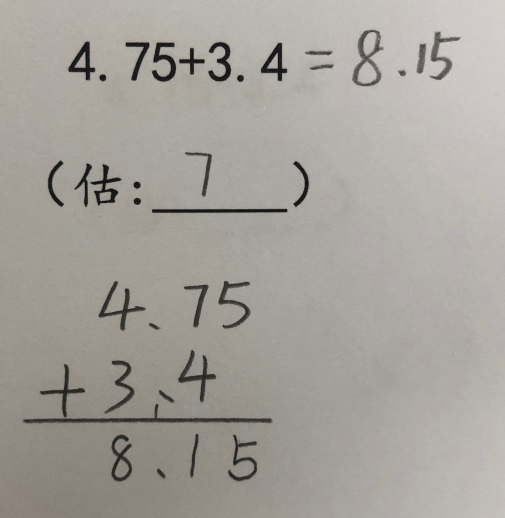 4.75+3.4=8.15
(估:7)
4.75
+3.4
8.15